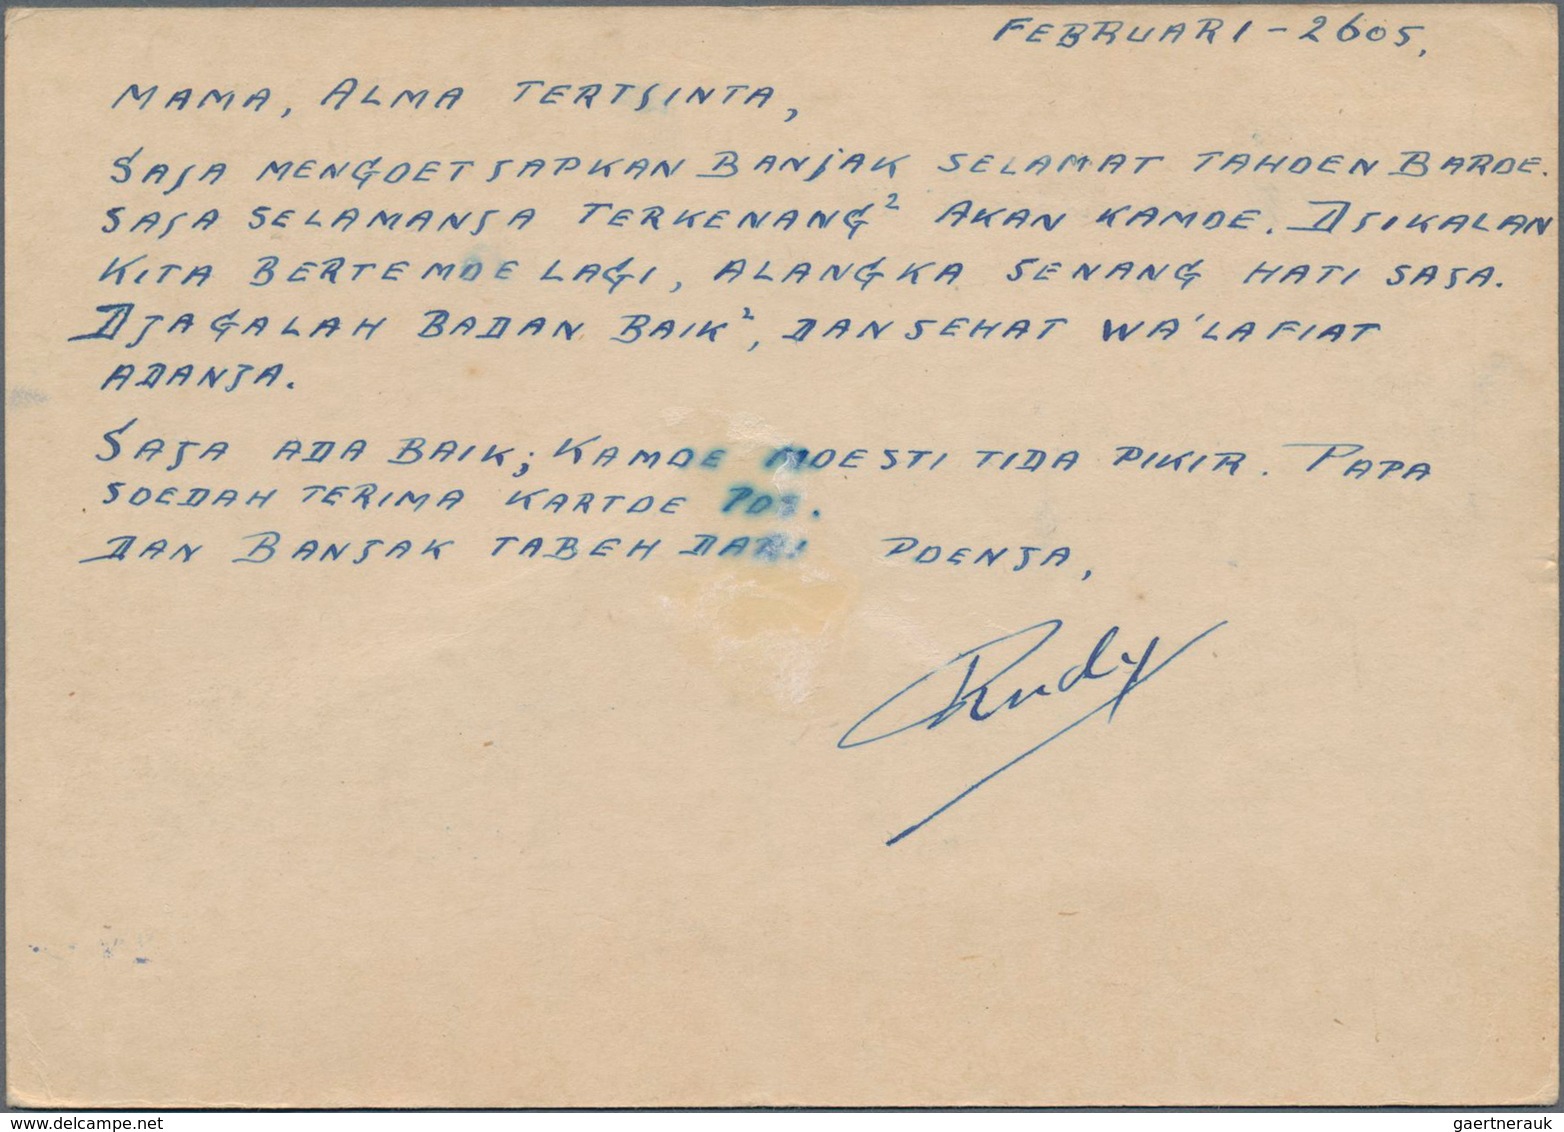 FEBRUARI - 2605,
MAMA, ALMA TERTJINTA,
SAJA MENGOETJAPKAN BANJAK SELAMAT TAHOEN BAROE.
SAJA SELAMANJA TERKENANG² AKAN KAMOE. DJIKALAN
KITA BERTEMOE LAGI, ALANGKA SENANG HATI SAJA.
DJAGALAH BADAN BAIK², DAN SEHAT WA'LAFIAT
ADANJA.
SAJA ADA BAIK; KAMOE MOESTI TIDA PIKIR. PAPA
SOEDAH TERIMA KARTOE POS.
DAN BANJAK TABEH DARI POENJA,
Rudy
gaertnerauk